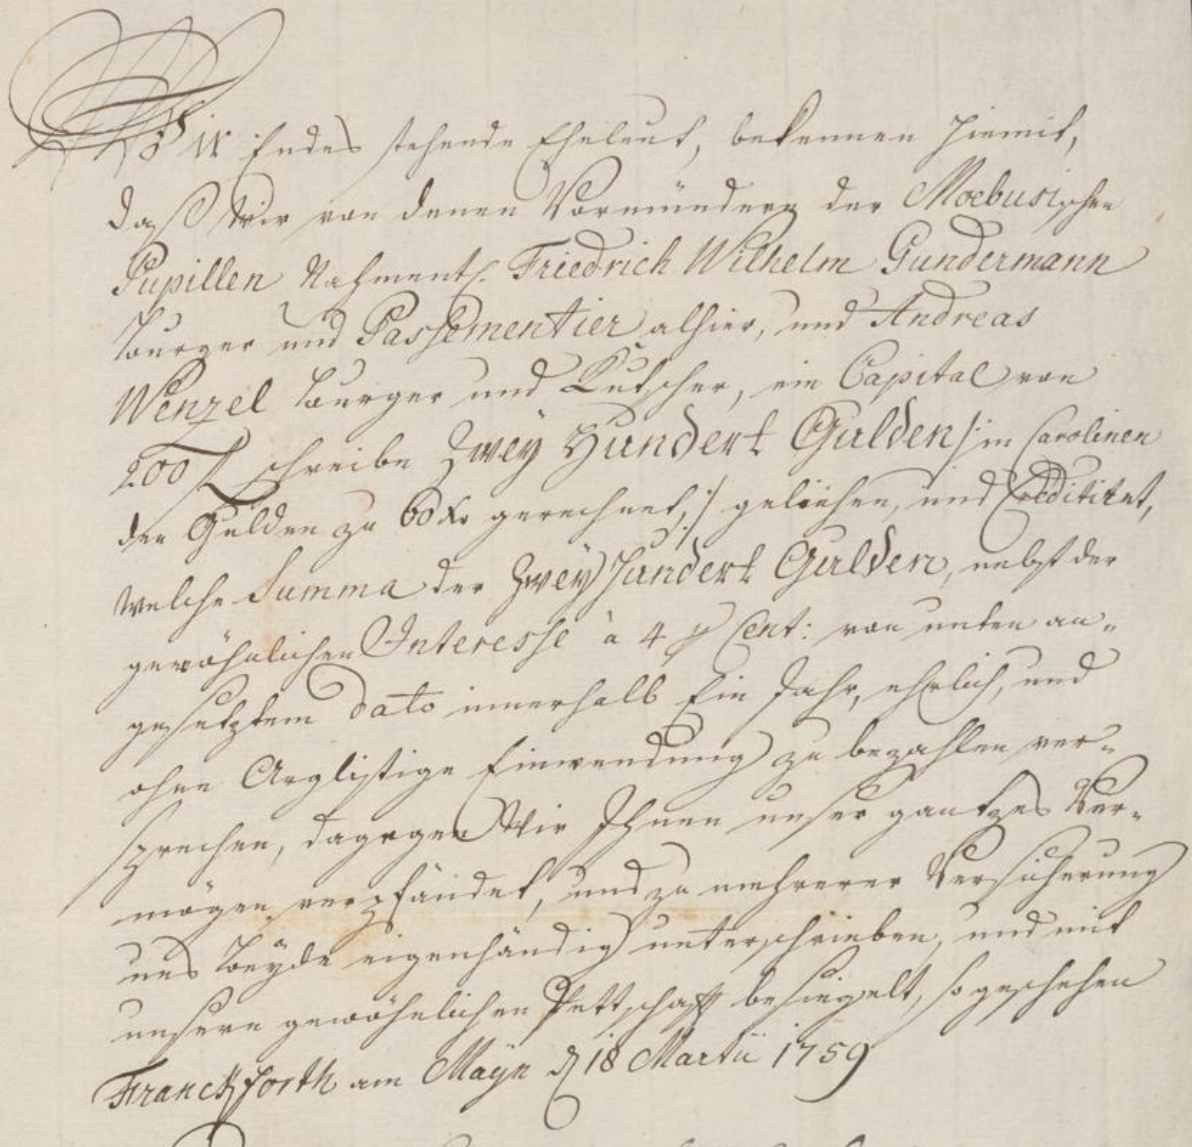 Wir Endes stehende Eheleut, bekennen hiemit,
daß Wir von denen Vormündern der Moebusischen
Pupillen Nahmentl. Friedrich Wilhelm Gundermann
Burger und Passementier alhier, und Andreas
Wenzel Burger und Kutscher, ein Capital von
200 f schreibe Zwey Hundert Gulden /: in Carolinen
den Gulden zu 60 Xr gerechnet, :/ geliehen, und Creditiret,
welche Summa der Zwey Hundert Gulden, nebst der
gewöhnlichen Interesse à 4 p Cent: von unten an-
gesetztem dato innerhalb Ein Jahr, ehrlich, und
ohne Arglistige Einwendung zu bezahlen ver-
sprechen, dagegen Wir Ihnen unser gantzes Ver-
mögen verpfändet, und zu mehrerer Versicherung
uns beyde eigenhändig unterschrieben, und mit
unsern gewöhnlichen Pettschafft besiegelt, so geschehen
Franckforth am Mayn d 18 Martii 1759